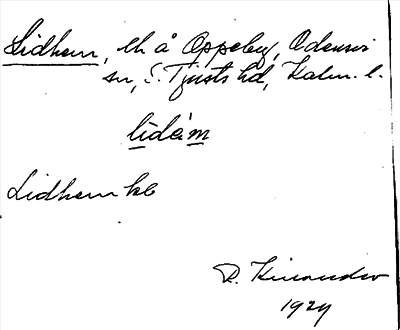 Lidhem, lh å Oppeby, Odensvi
sn, S. Tjusts hd, Kalm. l.
lidäm
Lidhem hl
R. Kinander
1929